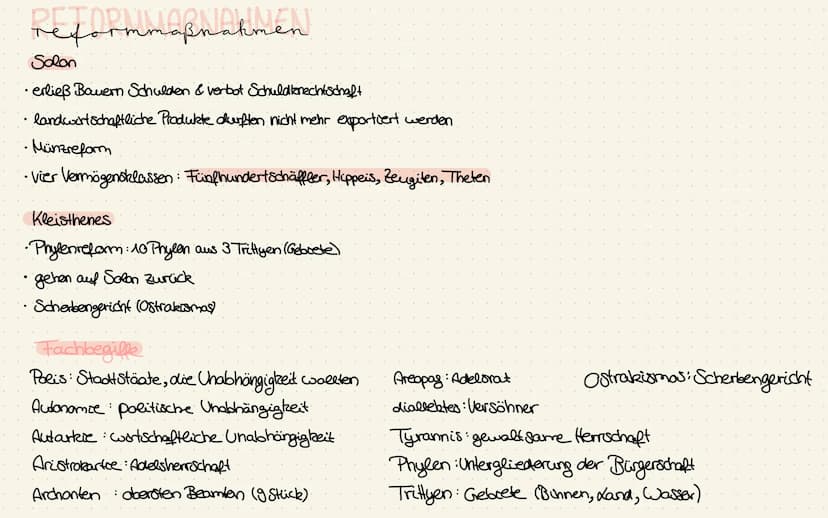 REFORMMAßNAHMEN
reformmaßnahmen
Solon
· erließ Bauern Schulden & verbot Schuldknechtschaft
· landwirtschaftliche Produkte durften nicht mehr exportiert werden
· Münzreform
· vier Vermögensklassen : Fünfhundertschäffler, Hippeis, Zeugiten, Theten
Kleisthenes
· Phylenreform : 10 Phylen aus 3 Trittyen (Gebiete)
· gehen auf Solon zurück
· Scherbengericht (Ostrakismos)
Fachbegiffe
Polis : Stadtstaate, die Unabhängigkeit wollten
Autonomie : politische Unabhängigkeit
Autarkie : wirtschaftliche Unabhängigkeit
Aristrokartie : Adelsherrschaft
Archonten : obersten Beamten (9 Stück)
Areopag : Adelsrat
diallektes : Versöhner
Tyrannis : gewaltsame Herrschaft
Phylen : Untergliederung der Bürgerschaft
Trittyen : Gebiete (Binnen, Land, Wasser)
Ostrakismos : Scherbengericht